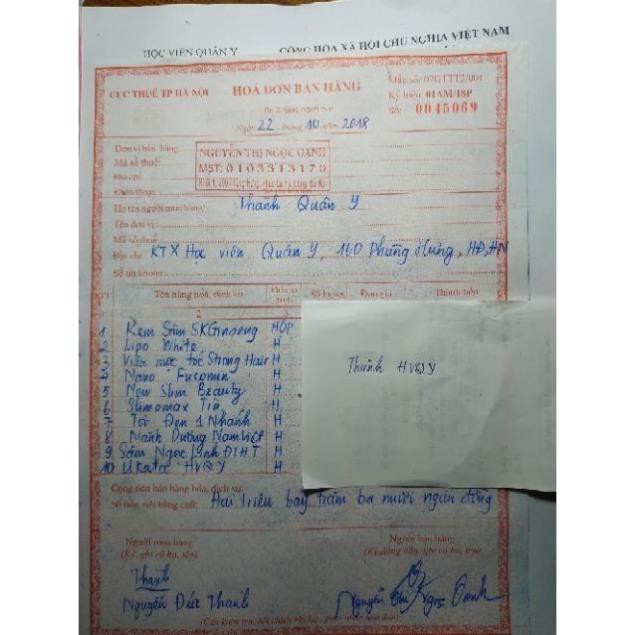 HỌC VIỆN QUÂN Y CỘNG HÒA XÃ HỘI CHỦ NGHĨA VIỆT NAM
CỤC THUẾ TP HÀ NỘI HOÁ ĐƠN BÁN HÀNG
Ký hiệu: 01AM/18P
Số: 0045069
Ngày 22 tháng 10 năm 2018
Đơn vị bán hàng:
NGUYỄN THỊ NGỌC OANH
Mã số thuế:
MST: 0103313170
Địa chỉ:
Điện thoại:
Họ tên người mua hàng: Thành Quân Y
Tên đơn vị:
Mã số thuế:
Địa chỉ: KTX Học viện Quân Y, 160 Phùng Hưng, HĐ, HN
Số tài khoản:
STT Tên hàng hoá, dịch vụ Đơn vị tính Số lượng Đơn giá Thành tiền
2
1 Kem Sâm SKGinseng HỘP
2 Lipo White H
3 Viên mọc tóc Strong Hair H
4 Nano Fucomin H
5 New Slim Beauty H
6 Slimomax Trà H
7 Tỏi Đen 1 Nhánh H
8 Mãnh Dương Nam Việt H
9 Sâm Ngọc Linh ĐTHT H
10 Ukata HVQY H
Thành HVQY
Cộng tiền bán hàng hóa, dịch vụ:
Số tiền viết bằng chữ: Hai triệu bảy trăm ba mươi ngàn đồng
Người mua hàng Người bán hàng
(Ký, ghi rõ họ, tên) (Ký, đóng dấu, ghi rõ họ, tên)
Thành
Nguyễn Đức Thành Nguyễn Thị Ngọc Oanh